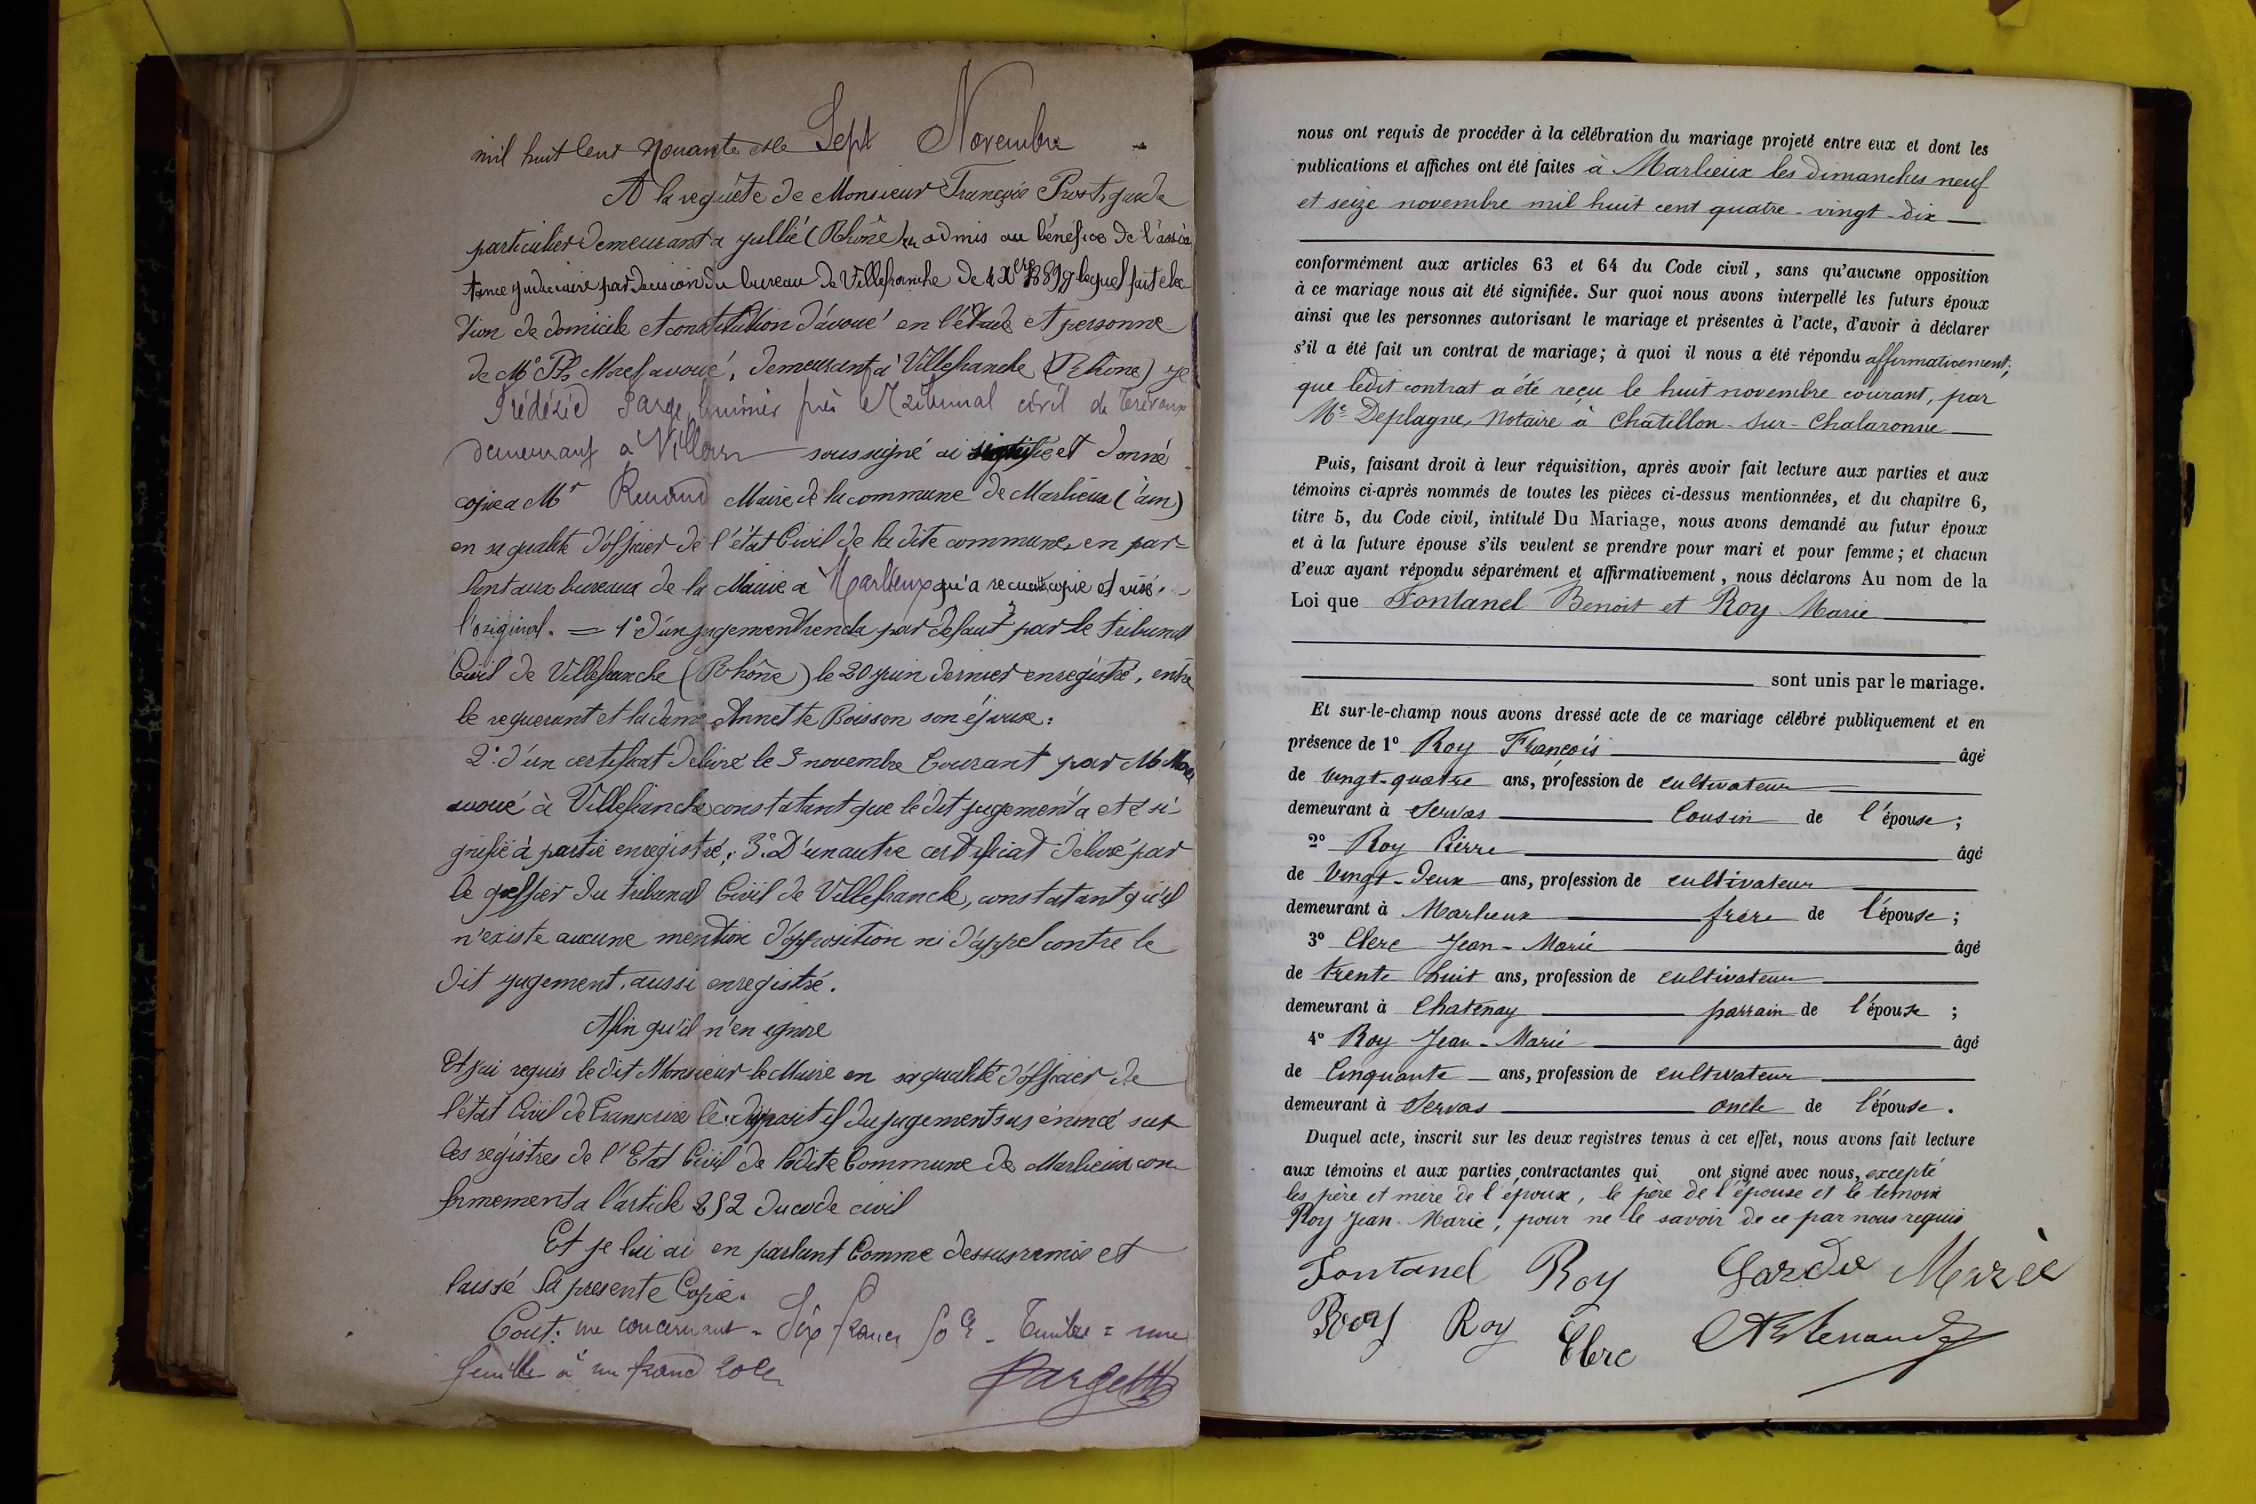 mil huit cent nonante et le Sept Novembre
A la requête de Monsieur François Prost, garde
particulier demeurant a Jullié (Rhône) admis au bénéfice de l'assis
tance judiciaire par decision du bureau de Villefranche de lequel fait elec
tion de domicile et constitution d'avoué en l'étude et personne
de Me Ph Morel avoué, demeurant à Villefranche (Rhône) je
Frédéric Parge huissier près le Tribunal civil de Trévoux
demeurant à Villars soussigné ai signifié et donné
copie a Mr Renaud Maire de la commune de Marlieux (ain)
en sa qualité d'officier de l'état Civil de la dite commune, en par=
lant aux bureaux de la Mairie a Marlieux qu'a recu copie et visé
l'original. = 1° d'un jugement rendu par defaut par le tribunal
Civil de Villefranche (Rhône) le 20 juin dernier enregistré, entre
le requerant et la dame Annette Boisson son épouse:
2° d'un certificat delivré le 5 novembre Courant par Me Morel
avoué à Villefranche constatant que le dit jugement a eté si-
gnifié à partie enregistré; 3° D'un autre certificat delivré par
le greffier du tribunal Civil de Villefranche, constatant qu'il
n'existe aucune mention d'opposition ni d'appel contre le
dit jugement, aussi enregistré.
Afin qu'il n'en ignore
Et j'ai requis le dit Monsieur le Maire en sa qualité d'officier de
l'état Civil de transcrire le dispositif du jugement sus énoncé sur
les régistres de l'Etat Civil de ladite Commune de Marlieux con
formement a l'article 252 du code civil
Et je lui ai en parlant Comme dessus remis et
laissé la presente Copie.
Cout: me concernant - Six francs 50 c - Timbre = une
feuille à un franc 20 c
Parge
nous ont requis de procéder à la célébration du mariage projeté entre eux et dont les
publications et affiches ont été faites à Marlieux les dimanches neuf
et seize novembre mil huit cent quatre-vingt-dix
conformément aux articles 63 et 64 du Code civil, sans qu'aucune opposition
à ce mariage nous ait été signifiée. Sur quoi nous avons interpellé les futurs époux
ainsi que les personnes autorisant le mariage et présentes à l'acte, d'avoir à déclarer
s'il a été fait un contrat de mariage; à quoi il nous a été répondu affirmativement;
que ledit contrat a été reçu le huit novembre courant, par
Me Deplagne, Notaire à Chatillon-sur-Chalaronne
Puis, faisant droit à leur réquisition, après avoir fait lecture aux parties et aux
témoins ci-après nommés de toutes les pièces ci-dessus mentionnées, et du chapitre 6,
titre 5, du Code civil, intitulé Du Mariage, nous avons demandé au futur époux
et à la future épouse s'ils veulent se prendre pour mari et pour femme; et chacun
d'eux ayant répondu séparément et affirmativement, nous déclarons Au nom de la
Loi que Fontanel Benoit et Roy Marie
sont unis par le mariage.
Et sur-le-champ nous avons dressé acte de ce mariage célébré publiquement et en
présence de 1° Roy François âgé
de vingt-quatre ans, profession de cultivateur
demeurant à Servas Cousin de l'épouse;
2° Roy Pierre âgé
de Vingt-deux ans, profession de cultivateur
demeurant à Marlieux frère de l'épouse;
3° Clerc Jean-Marie âgé
de trente huit ans, profession de cultivateur
demeurant à Chatenay parrain de l'épouse;
4° Roy Jean-Marie âgé
de Cinquante ans, profession de cultivateur
demeurant à Servas oncle de l'épouse.
Duquel acte, inscrit sur les deux registres tenus à cet effet, nous avons fait lecture
aux témoins et aux parties contractantes qui ont signé avec nous, excepté
les père et mère de l'époux, le père de l'épouse et le temoin
Roy Jean-Marie, pour ne le savoir de ce par nous requis
Fontanel Roy Garde Marie
Roy Roy Clerc Renaud